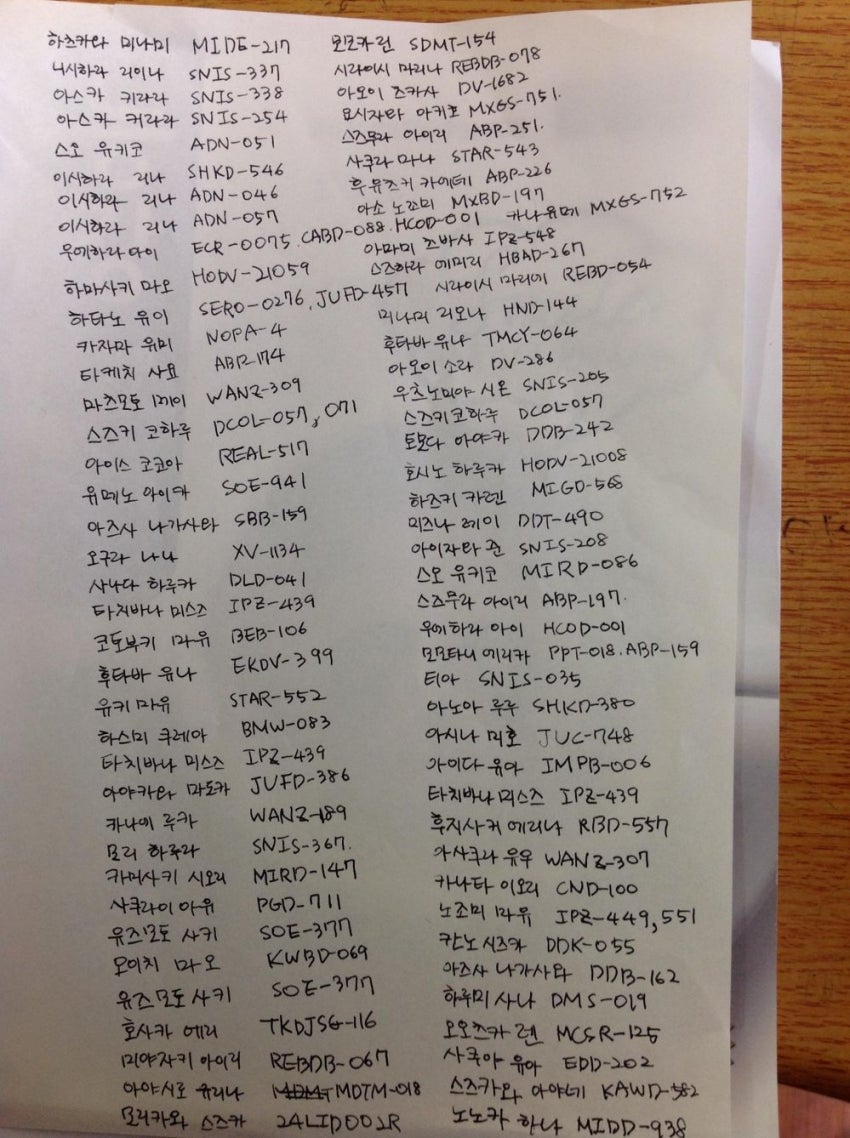 하츠카와 미나미 MIDE-217
니시하라 리이나 SNIS-337
아스카 키라라 SNIS-338
아스카 키라라 SNIS-254
스오 유키코 ADN-051
이시하라 리나 SHKD-546
이시하라 리나 ADN-046
이시하라 리나 ADN-057
우에하라 아이 ECR-0075. CABD-088. HCOD-001
하마사키 마오 HODV-21059
하타노 유이 SERO-0276, JUFD-457
카자마 유미 NOPA-4
타케치 사요 ABP-174
마츠모토 메이 WANZ-309
스즈키 코하루 DCOL-057, 071
아이스 코코아 REAL-517
유메노 아이카 SOE-941
아즈사 나가사와 SBB-159
오구라 나나 XV-1134
사나다 하루카 DLD-041
타치바나 미스즈 IPZ-439
코토부키 마유 BEB-106
후타바 유나 EKDV-399
유키 마유 STAR-552
하스미 쿠레아 BMW-083
타치바나 미스즈 IPZ-439
아야카와 마도카 JUFD-386
카나에 루카 WANZ-189
모리 하루라 SNIS-367.
카미사키 시오리 MIRD-147
사쿠라이 아유 PGD-711
유즈모토 사키 SOE-377
모이치 마오 KWBD-069
유즈모토 사키 SOE-377
호사카 에리 TKDJSG-116
미야자키 아이리 REBDB-067
아야시로 유리나 MDTM-018
모리카와 스즈카 24LID002R
모모카 린 SDMT-154
시라이시 마리나 REBDB-078
아오이 츠카사 DV-1682
요시자와 아키호 MXGS-751.
스즈무라 아이리 ABP-251.
사쿠라 마나 STAR-543
후유즈키 카에데 ABP-226
아소 노조미 MXBD-197
카나 유메 MXGS-752
아마미 츠바사 IPZ-548
스즈하라 에미리 HBAD-267
시라이시 마리에 REBD-054
미나미 리오나 HND-144
후타바 유나 TMCY-064
아오이 소라 DV-286
우츠노미야 시온 SNIS-205
스즈키 코하루 DCOL-057
토모다 아야카 DDB-242
호시노 하루카 HODV-21008
하즈키 카렌 MIGD-568
미즈나 레이 DDT-490
아이자와 준 SNIS-208
스오 유키코 MIRD-086
스즈무라 아이리 ABP-197.
우에하라 아이 HCOD-001
모모타니 에리카 PPT-018. ABP-159
티아 SNIS-035
아노아 루루 SHKD-380
아시나 미호 JUC-748
아이다 유아 IMPB-006
타치바나 미스즈 IPZ-439
후지사키 에리나 RBD-557
아사쿠라 유우 WANZ-307
카나타 이오리 CND-100
노조미 마유 IPZ-449, 551
칸노 시즈카 DDK-055
아즈사 나가사와 DDB-162
하루미 사나 DMS-019
오오츠카 렌 MCSR-125
사쿠아 유아 EDD-202
스즈카와 아야네 KAWD-582
노노카 하나 MIDD-938